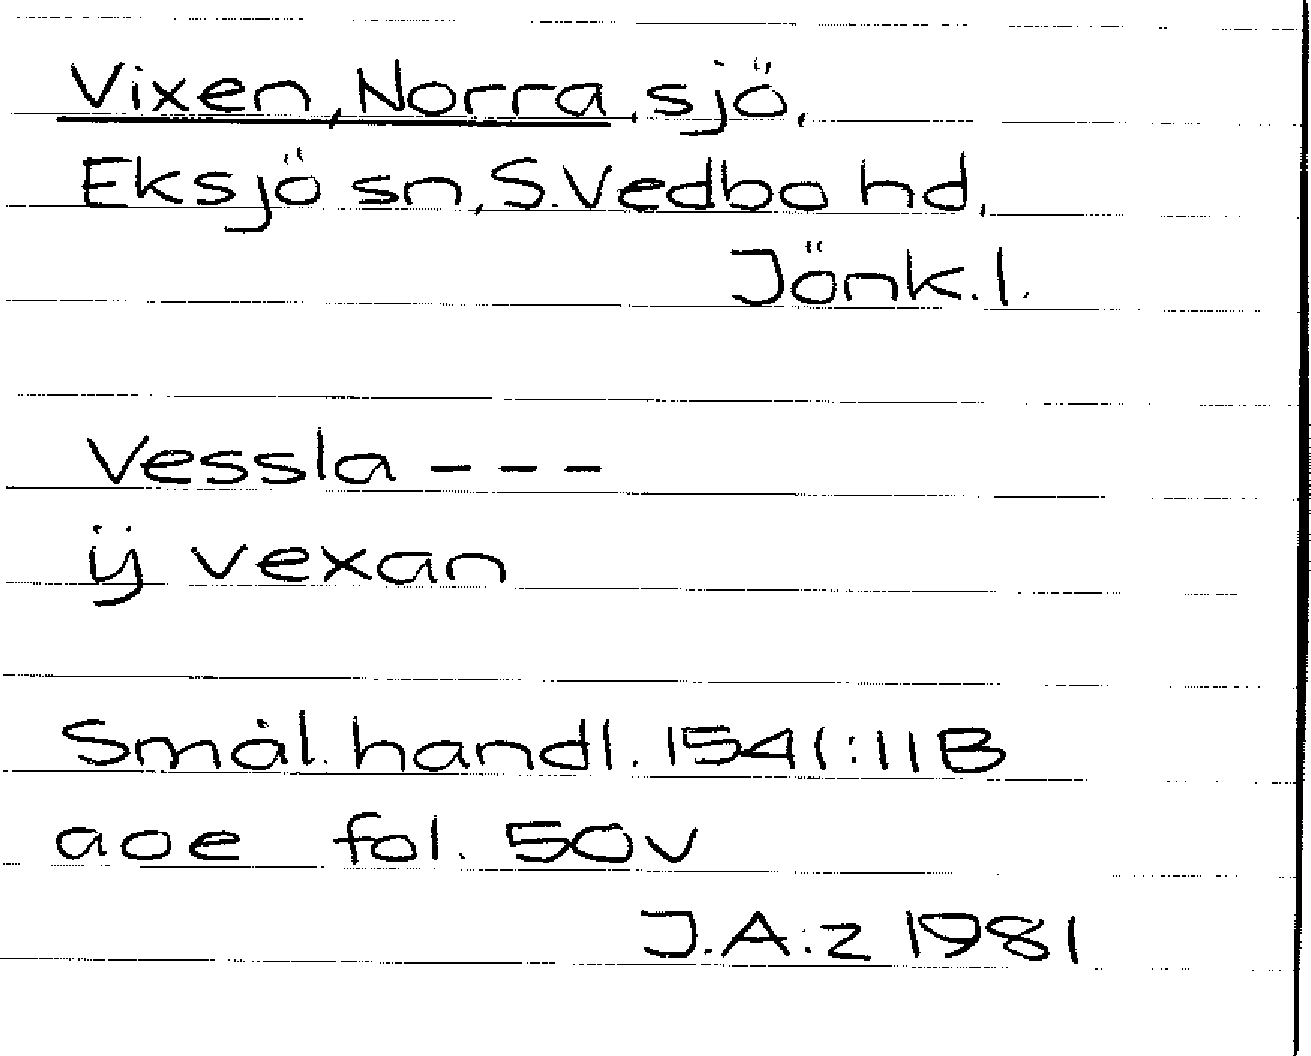 Vixen, Norra, sjö,
Eksjö sn, S. Vedbo hd,
Jönk. l.
Vessla - - -
ij vexan
Smål. handl. 1541:11 B
aoe fol. 50v
J.A:z 1981